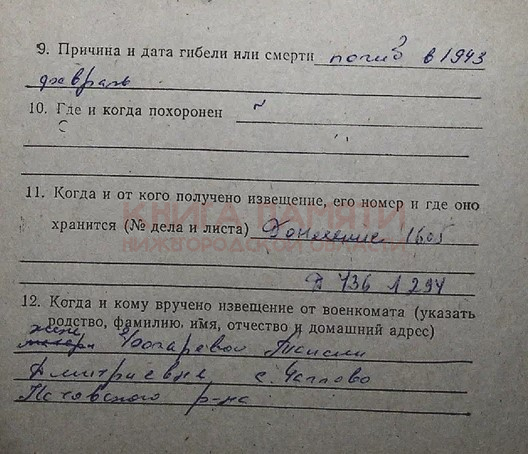 9. Причина и дата гибели или смерти погиб в 1943
февраль
10. Где и когда похоронен ~
11. Когда и от кого получено извещение, его номер и где оно
хранится (№ дела и листа) Донесение 1605
КНИГА ПАМЯТИ
НИЖЕГОРОДСКОЙ ОБЛАСТИ
Д 736 Л 294
12. Когда и кому вручено извещение от военкомата (указать
родство, фамилию, имя, отчество и домашний адрес)
жене
Таисии
Дмитриевне с.
р-на